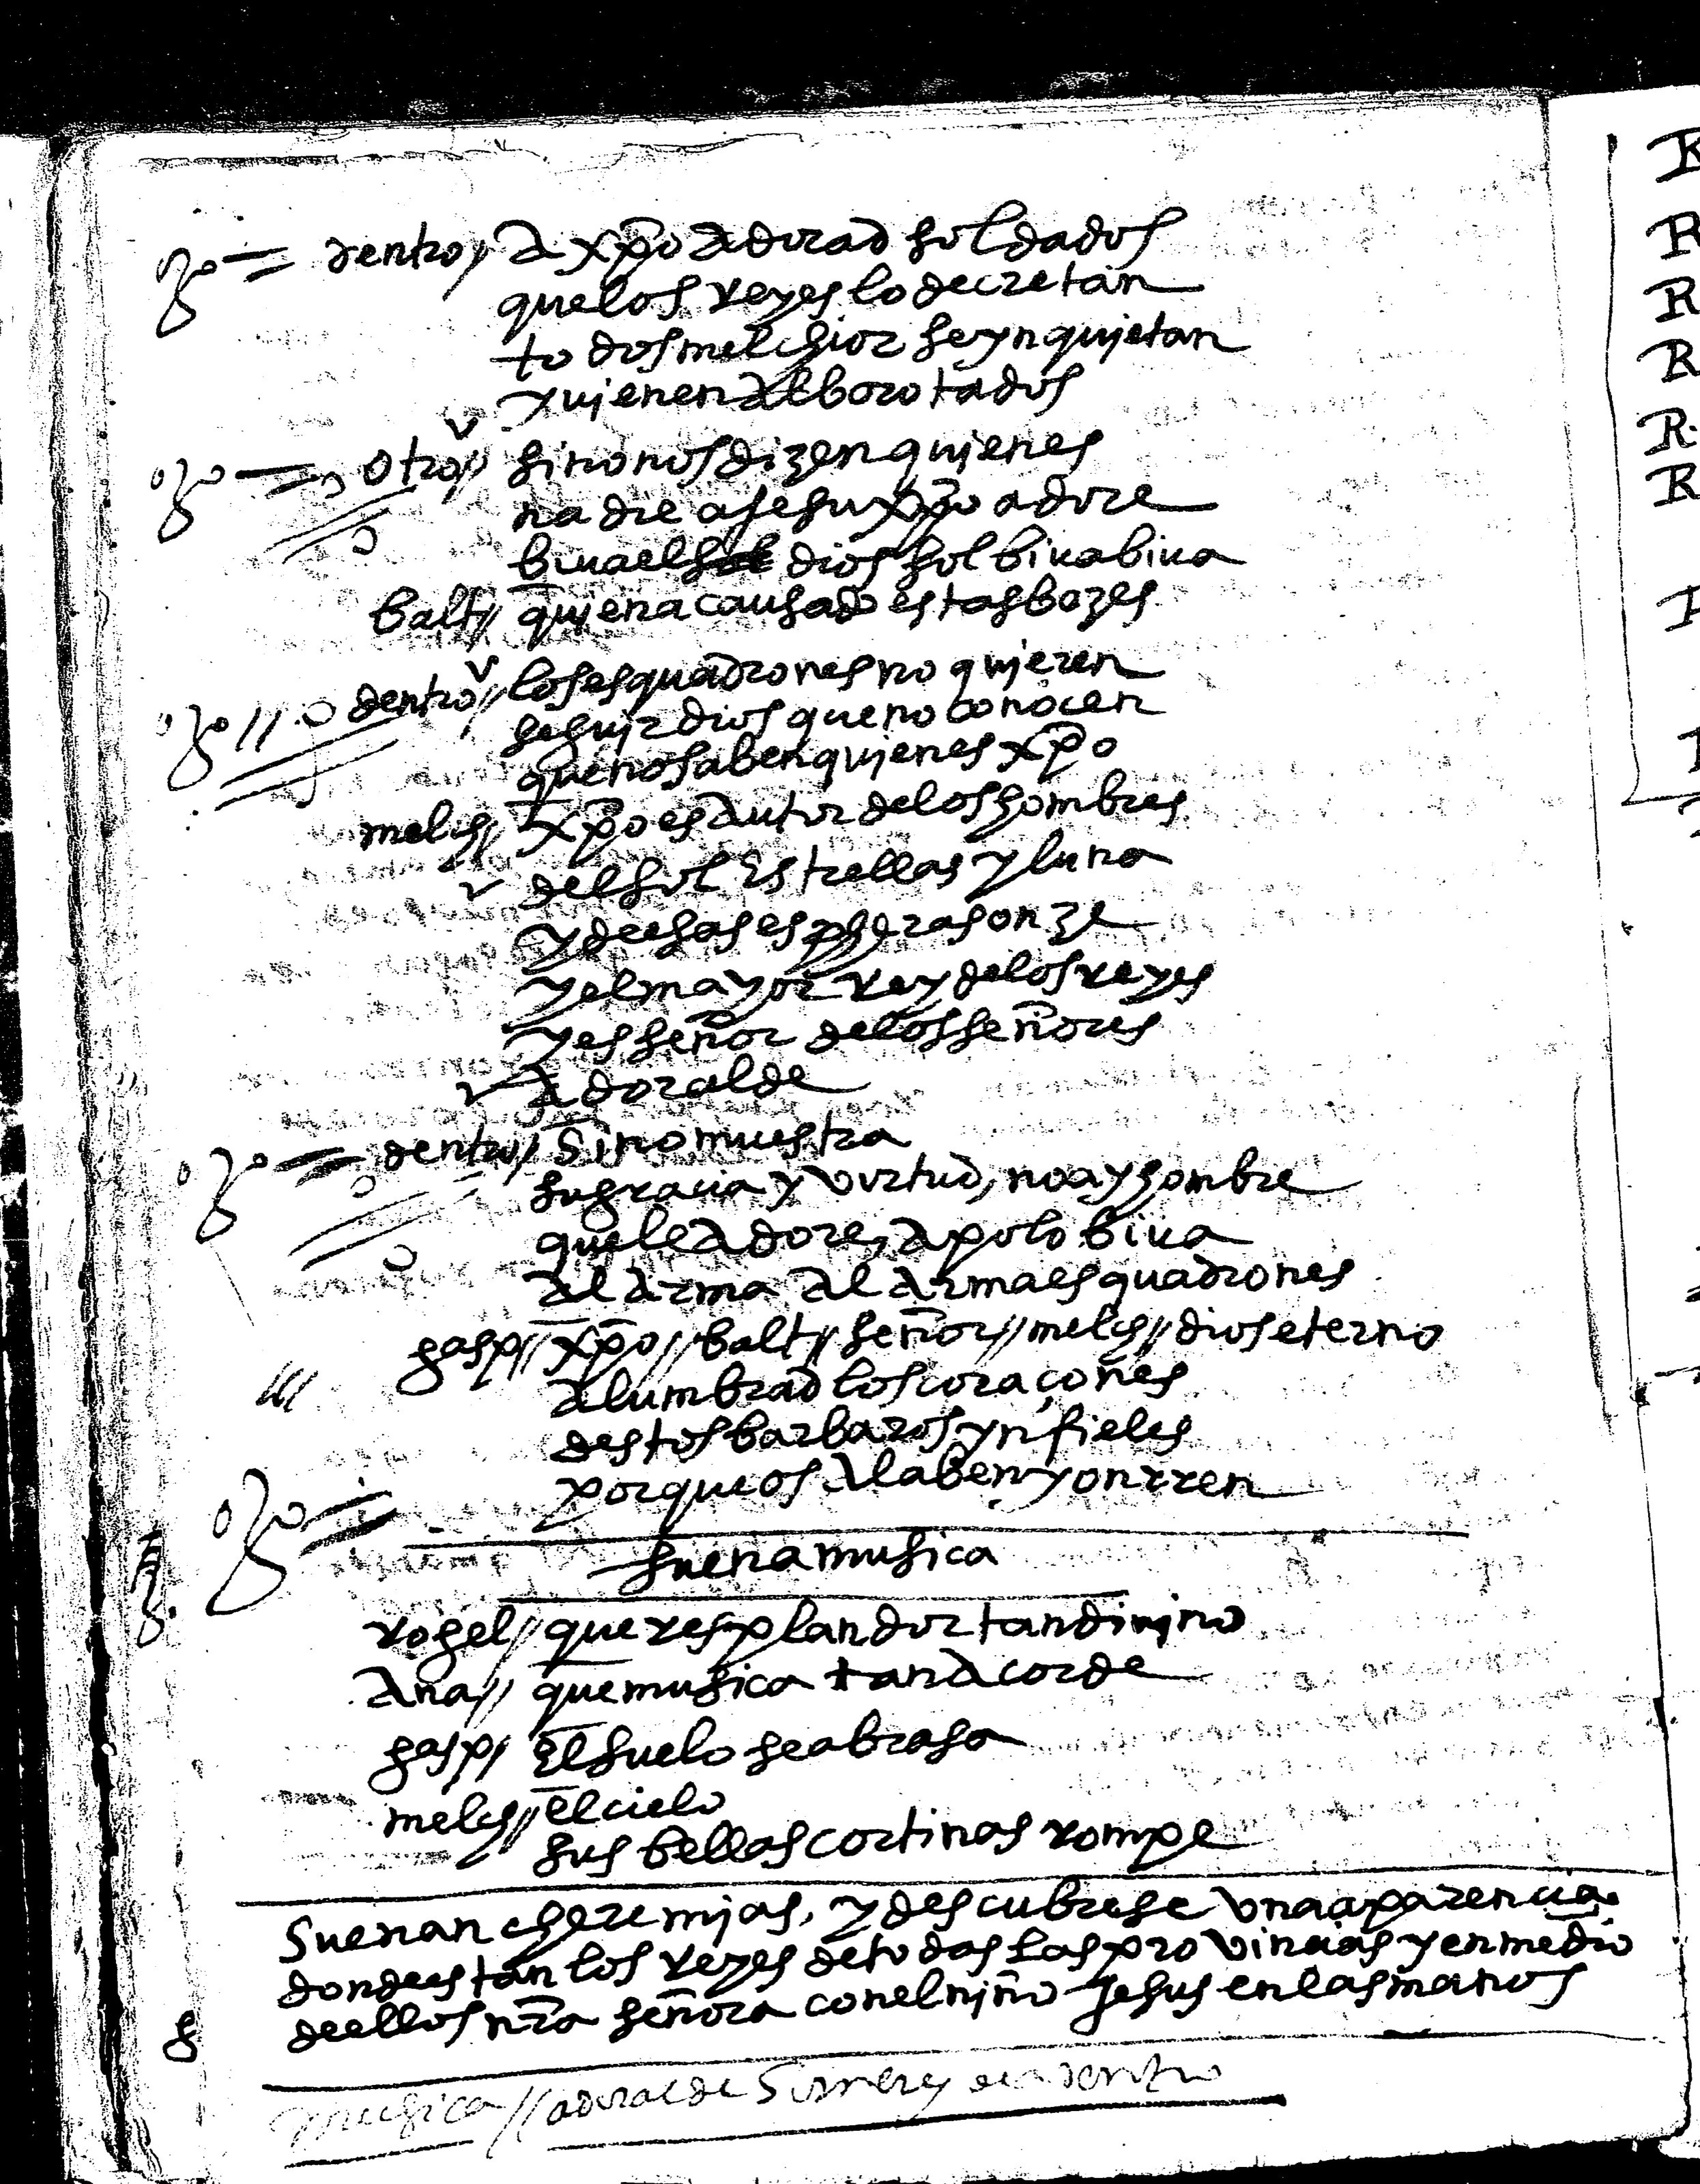 dentro// A xp̄o adorad soldados
que los reyes lo decretan
todos melchior se ynquietan
y uienen alborotados
otro// si no nos dizen quien es
nadie a jesuxpo adore
biua el sol dios sol biua biua
balt// quien a causado estas bozes
dentro// los esquadrones no quieren
seguir dios que no conocen
que no saben quien es xp̄o
melch// xp̄o es autor de los hombres
del sol estrellas y luna
y de esas espheras onze
y el mayor rey de los reyes
y es señor de los señores
Adoralde
dentro// Si no muestra
su gracia y virtud, no ay hombre
que le adore, apolo biua
al arma al arma esquadrones
gasp// xp̄o// balt// señor// melch// dios eterno
alumbrad los coraçones
destos barbaros ynfieles
porque os alaben y onrren
suena musica
rogel// que resplandor tan diuino
Ana// que musica tan acorde
gasp// El suelo se abrasa
melch// el cielo
sus bellas cortinas rompe
Suenan cheremias, y descubrese vna aparencia
donde estan los reyes de todas las prouincias y en medio
de ellos nr̄a señora con el niño Jesus en las manos
musica// adoralde